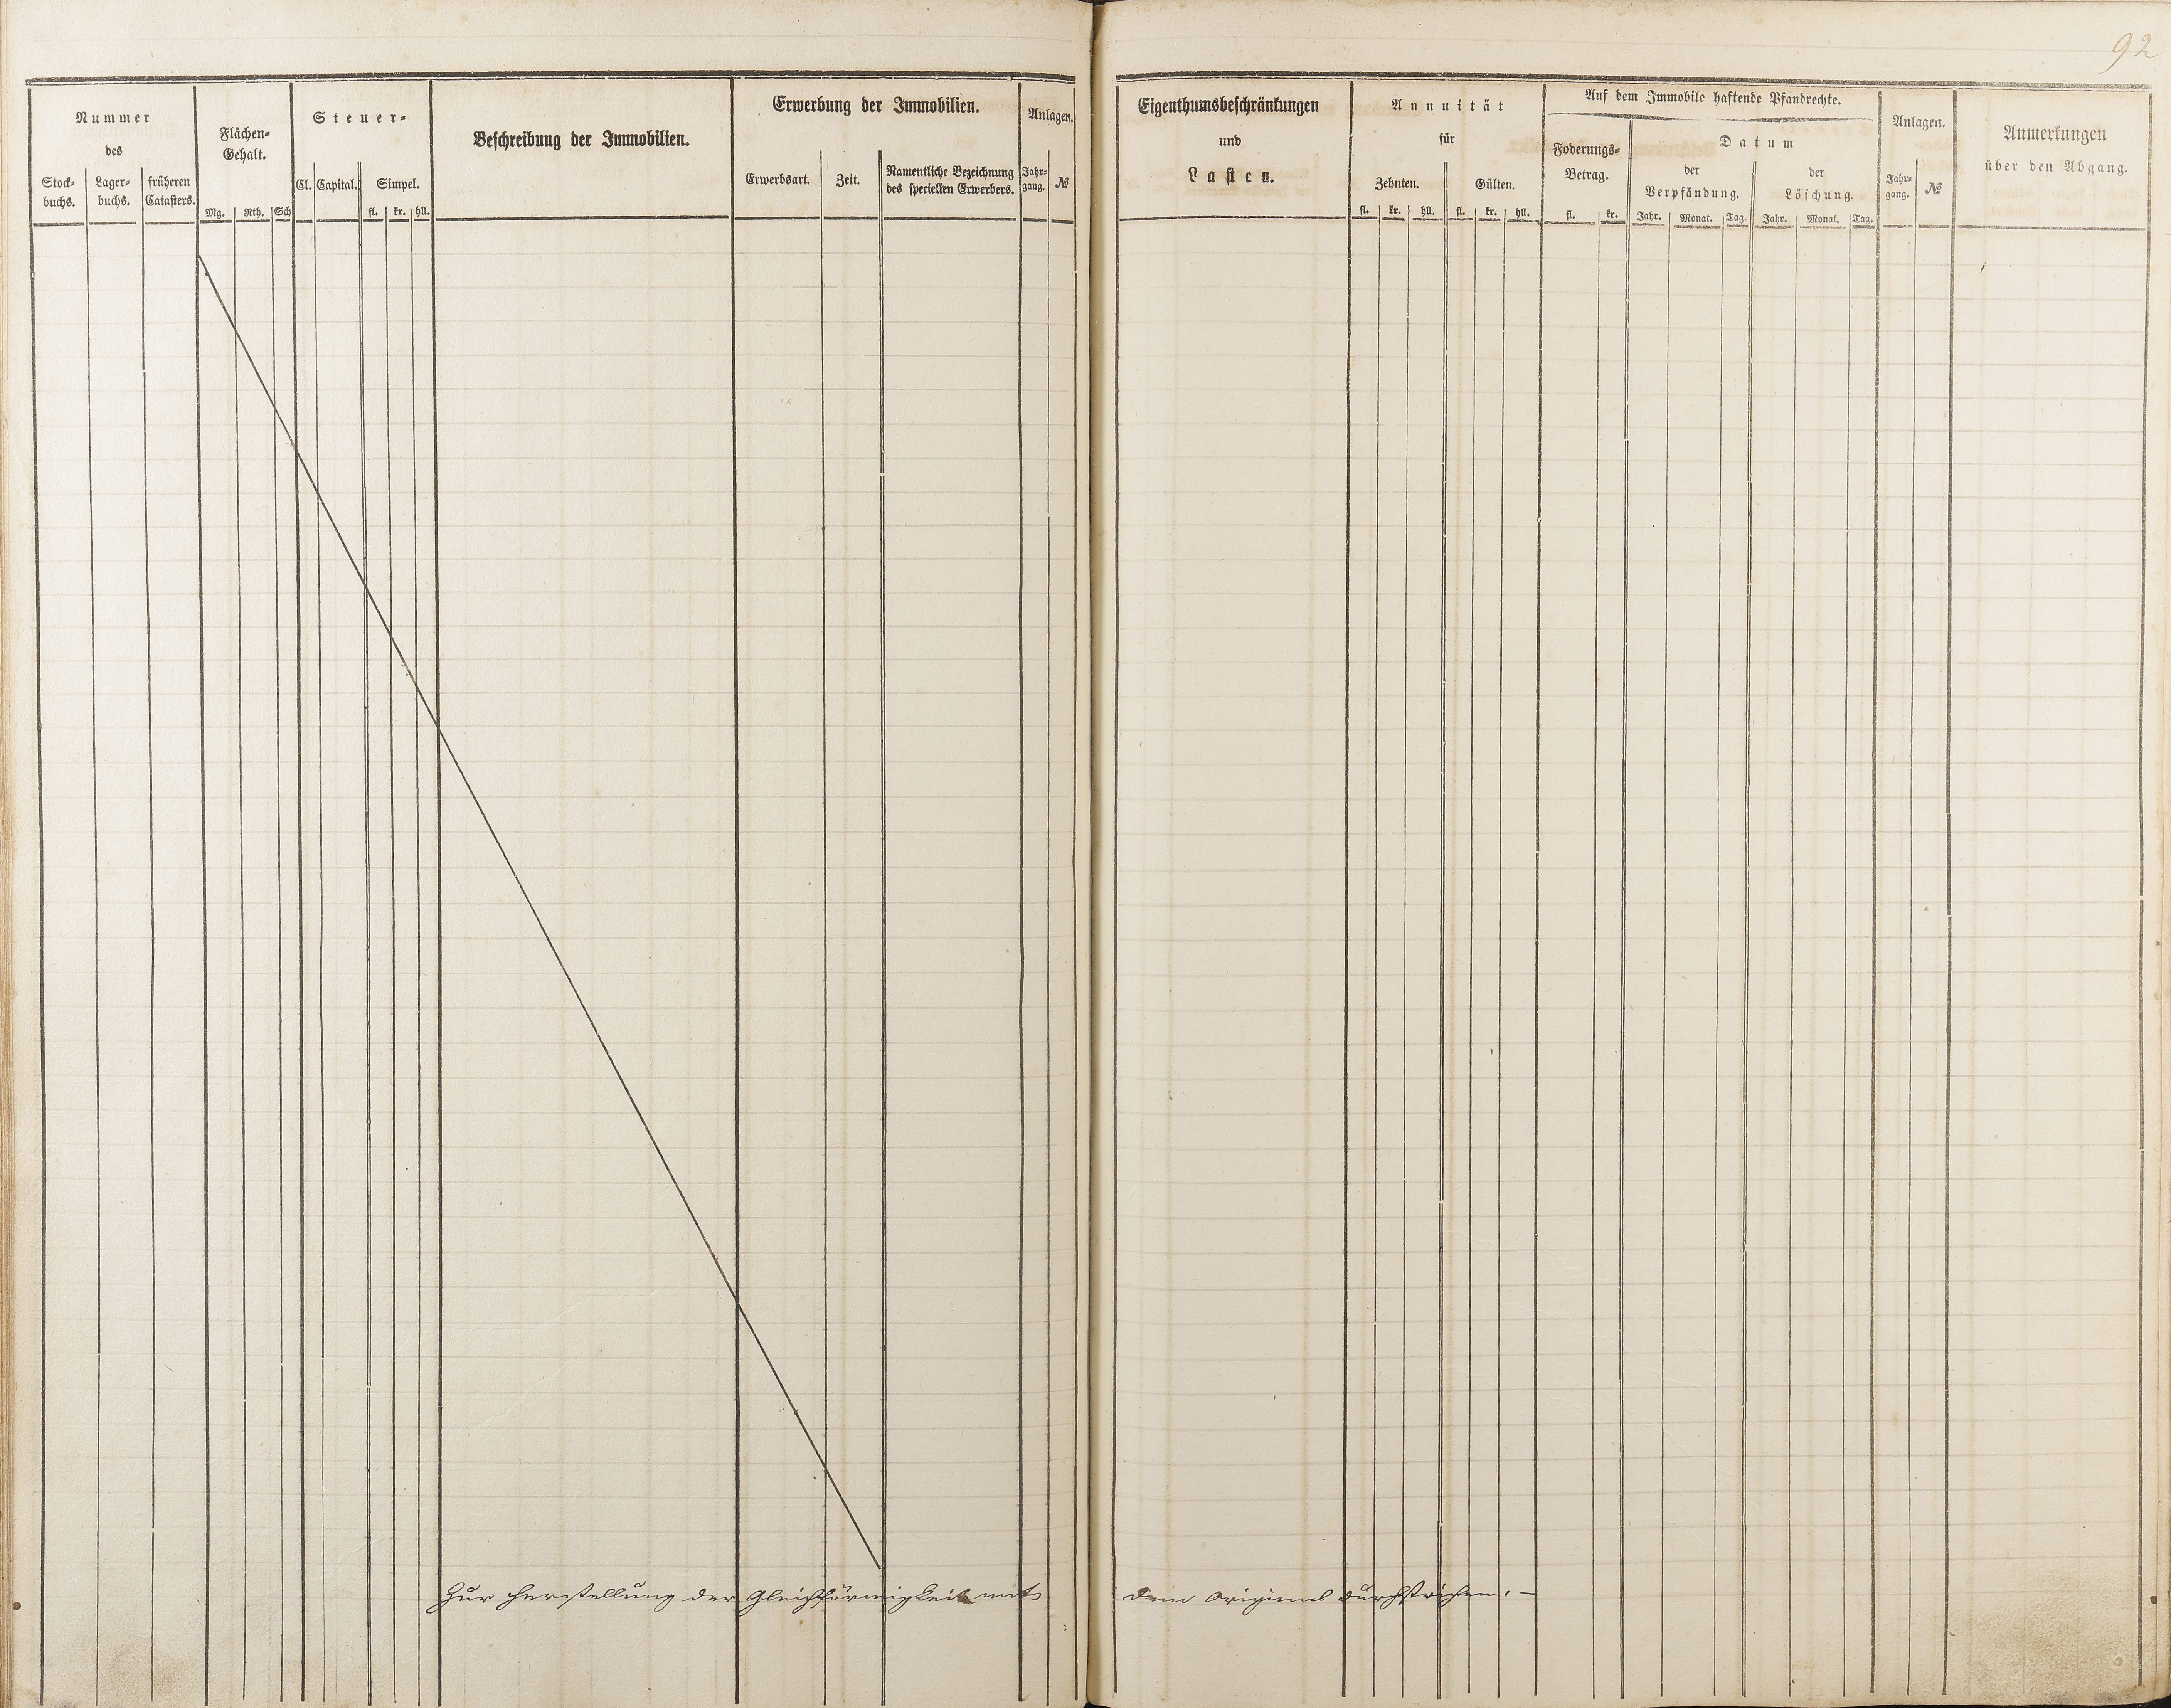 92
Nummer
des
Stock-
buchs.
Lager-
buchs.
früheren
Catasters.
Flächen-
Gehalt.
Mg. Rth. Sch
Steuer-
Cl. Capital. Simpel.
fl. kr. hll.
Beschreibung der Immobilien.
Erwerbung der Immobilien.
Erwerbsart. Zeit.
Namentliche Bezeichnung
des speciellen Erwerbers.
Anlagen.
Jahr-
gang.
№
Eigenthumsbeschränkungen
und
Lasten.
Annuität
für
Zehnten. Gülten.
fl. kr. hll. fl. kr. hll.
Auf dem Immobile haftende Pfandrechte.
Foderungs-
Betrag.
fl. kr.
Datum
der
Verpfändung.
Jahr. Monat. Tag.
der
Löschung.
Jahr. Monat. Tag.
Anlagen.
Jahr-
gang.
№
Anmerkungen
über den Abgang.
Zur Herstellung der Gleichförmigkeit mit dem Original durchstrichen. —